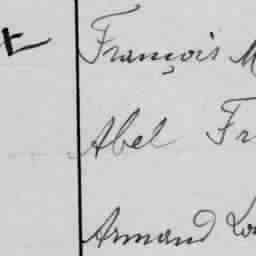 François M
Abel Fr
Armand Lou